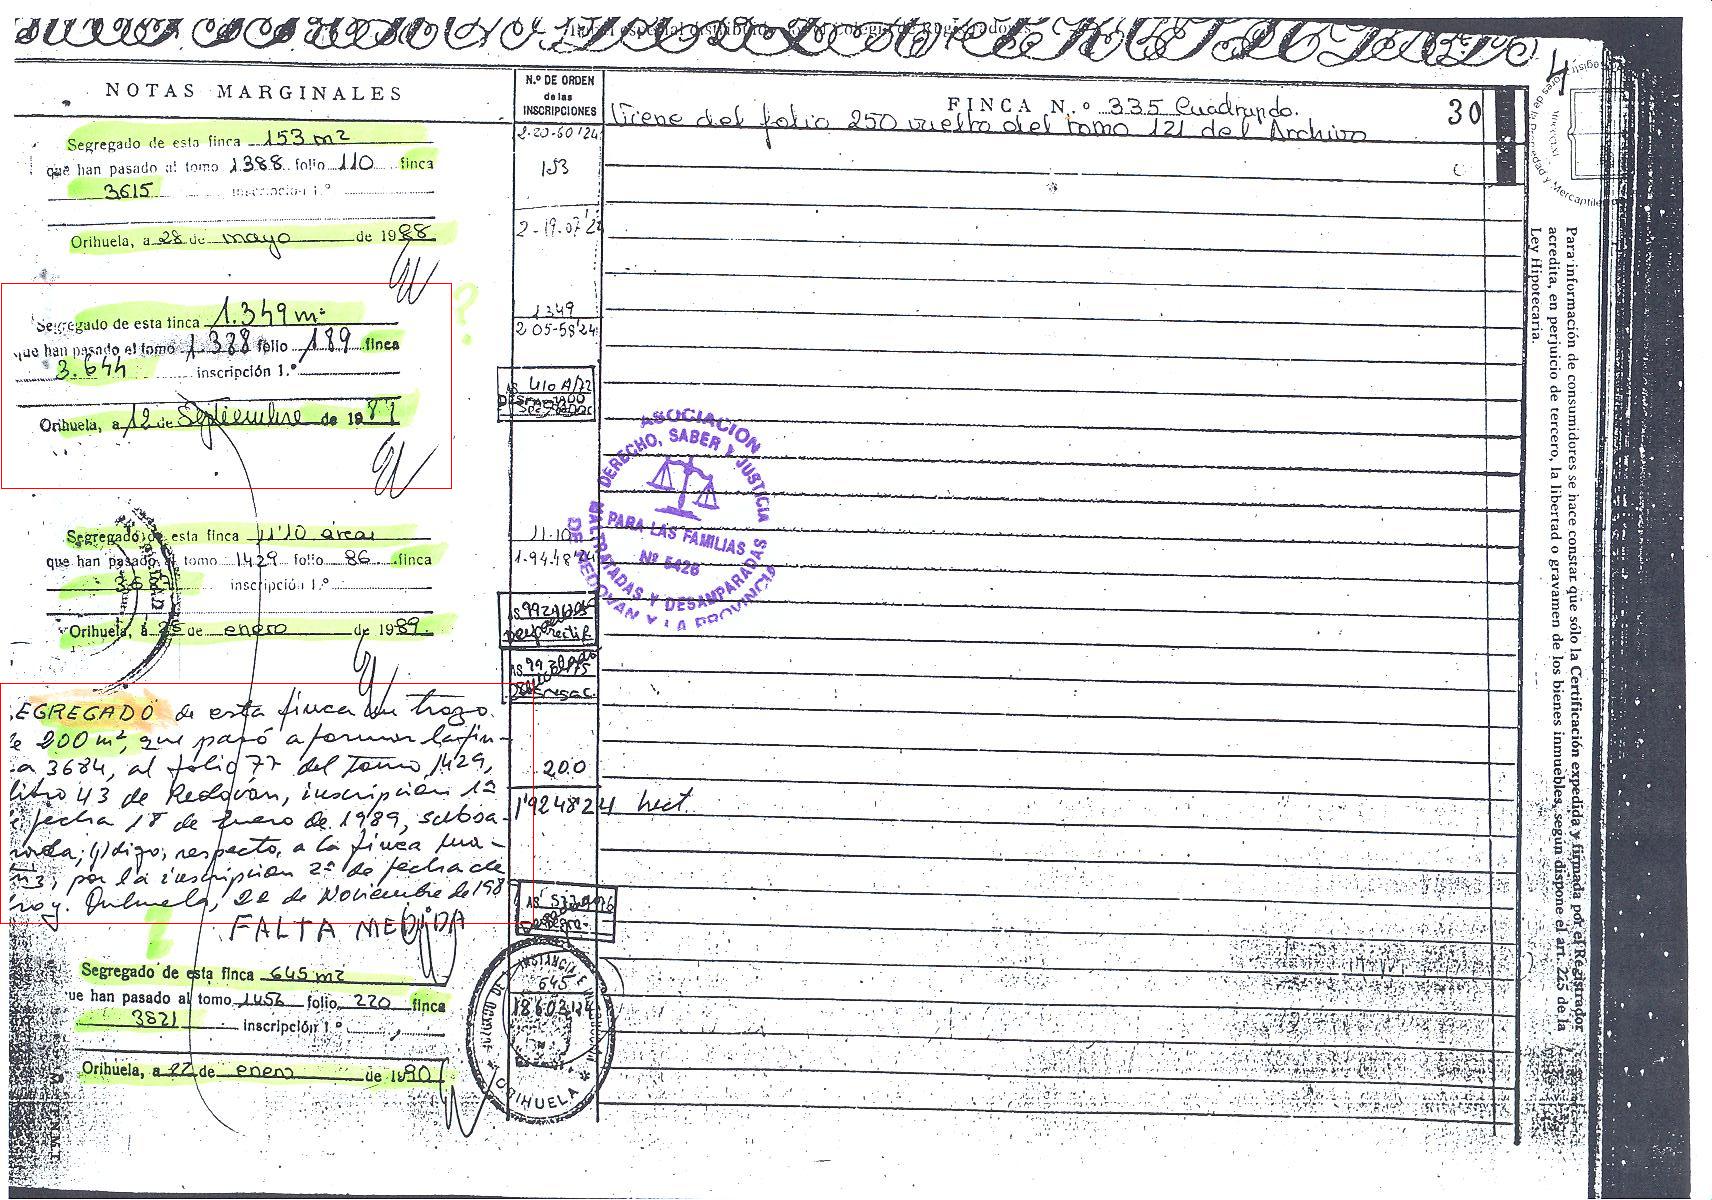 NOTAS MARGINALES
N.º DE ORDEN
de las
INSCRIPCIONES
FINCA N.º 335 Cuadrupdo. 30
Viene del folio 250 vuelto del tomo 121 del Archivo
4
Segregado de esta finca 153 m²
que han pasado al tomo 1388 folio 110 finca
3615 inscripción 1.ª
Orihuela, a 28 de mayo de 1988
2-20-60'24
153
2-19.07'24
Segregado de esta finca 1.349 m²
que han pasado el tomo 1.388 folio 189 finca
3.644 inscripción 1.ª
Orihuela, a 12 de Septiembre de 1987
?
1349
2 05-58'24
AS 410 A/72
ASOCIACION
DERECHO, SABER Y JUSTICIA
PARA LAS FAMILIAS
Nº 5426
MALTRATADAS Y DESAMPARADAS
DE REDOVAN Y LA PROVINCIA
Segregado de esta finca 11'10 áreas
que han pasado al tomo 1429 folio 86 finca
inscripción 1.ª
Orihuela, a 25 de enero de 1989.
11.10
1-94-48'24
EGREGADO de esta finca un trozo
de 200 m², que pasó a formar la fin-
ca 3684, al folio 77 del tomo 1429,
libro 43 de Redován, inscripción 1ª
fecha 18 de Enero de 1989, subsa-
digo, respecto, a la finca
por la inscripción 2ª de fecha de
hoy. Orihuela, 22 de Noviembre de 198
FALTA MEDIDA
200
1'924824 hect.
Segregado de esta finca 645 m²
ue han pasado al tomo 1456 folio 220 finca
3821 inscripción 1.ª
Orihuela, a 22 de enero de 1990
645
1860324
JUZGADO DE INSTANCIA E
ORIHUELA
Para información de consumidores se hace constar que sólo la Certificación expedida y firmada por el Registrador
acredita, en perjuicio de tercero, la libertad o gravamen de los bienes inmuebles, según dispone el art. 225 de la
Ley Hipotecaria.